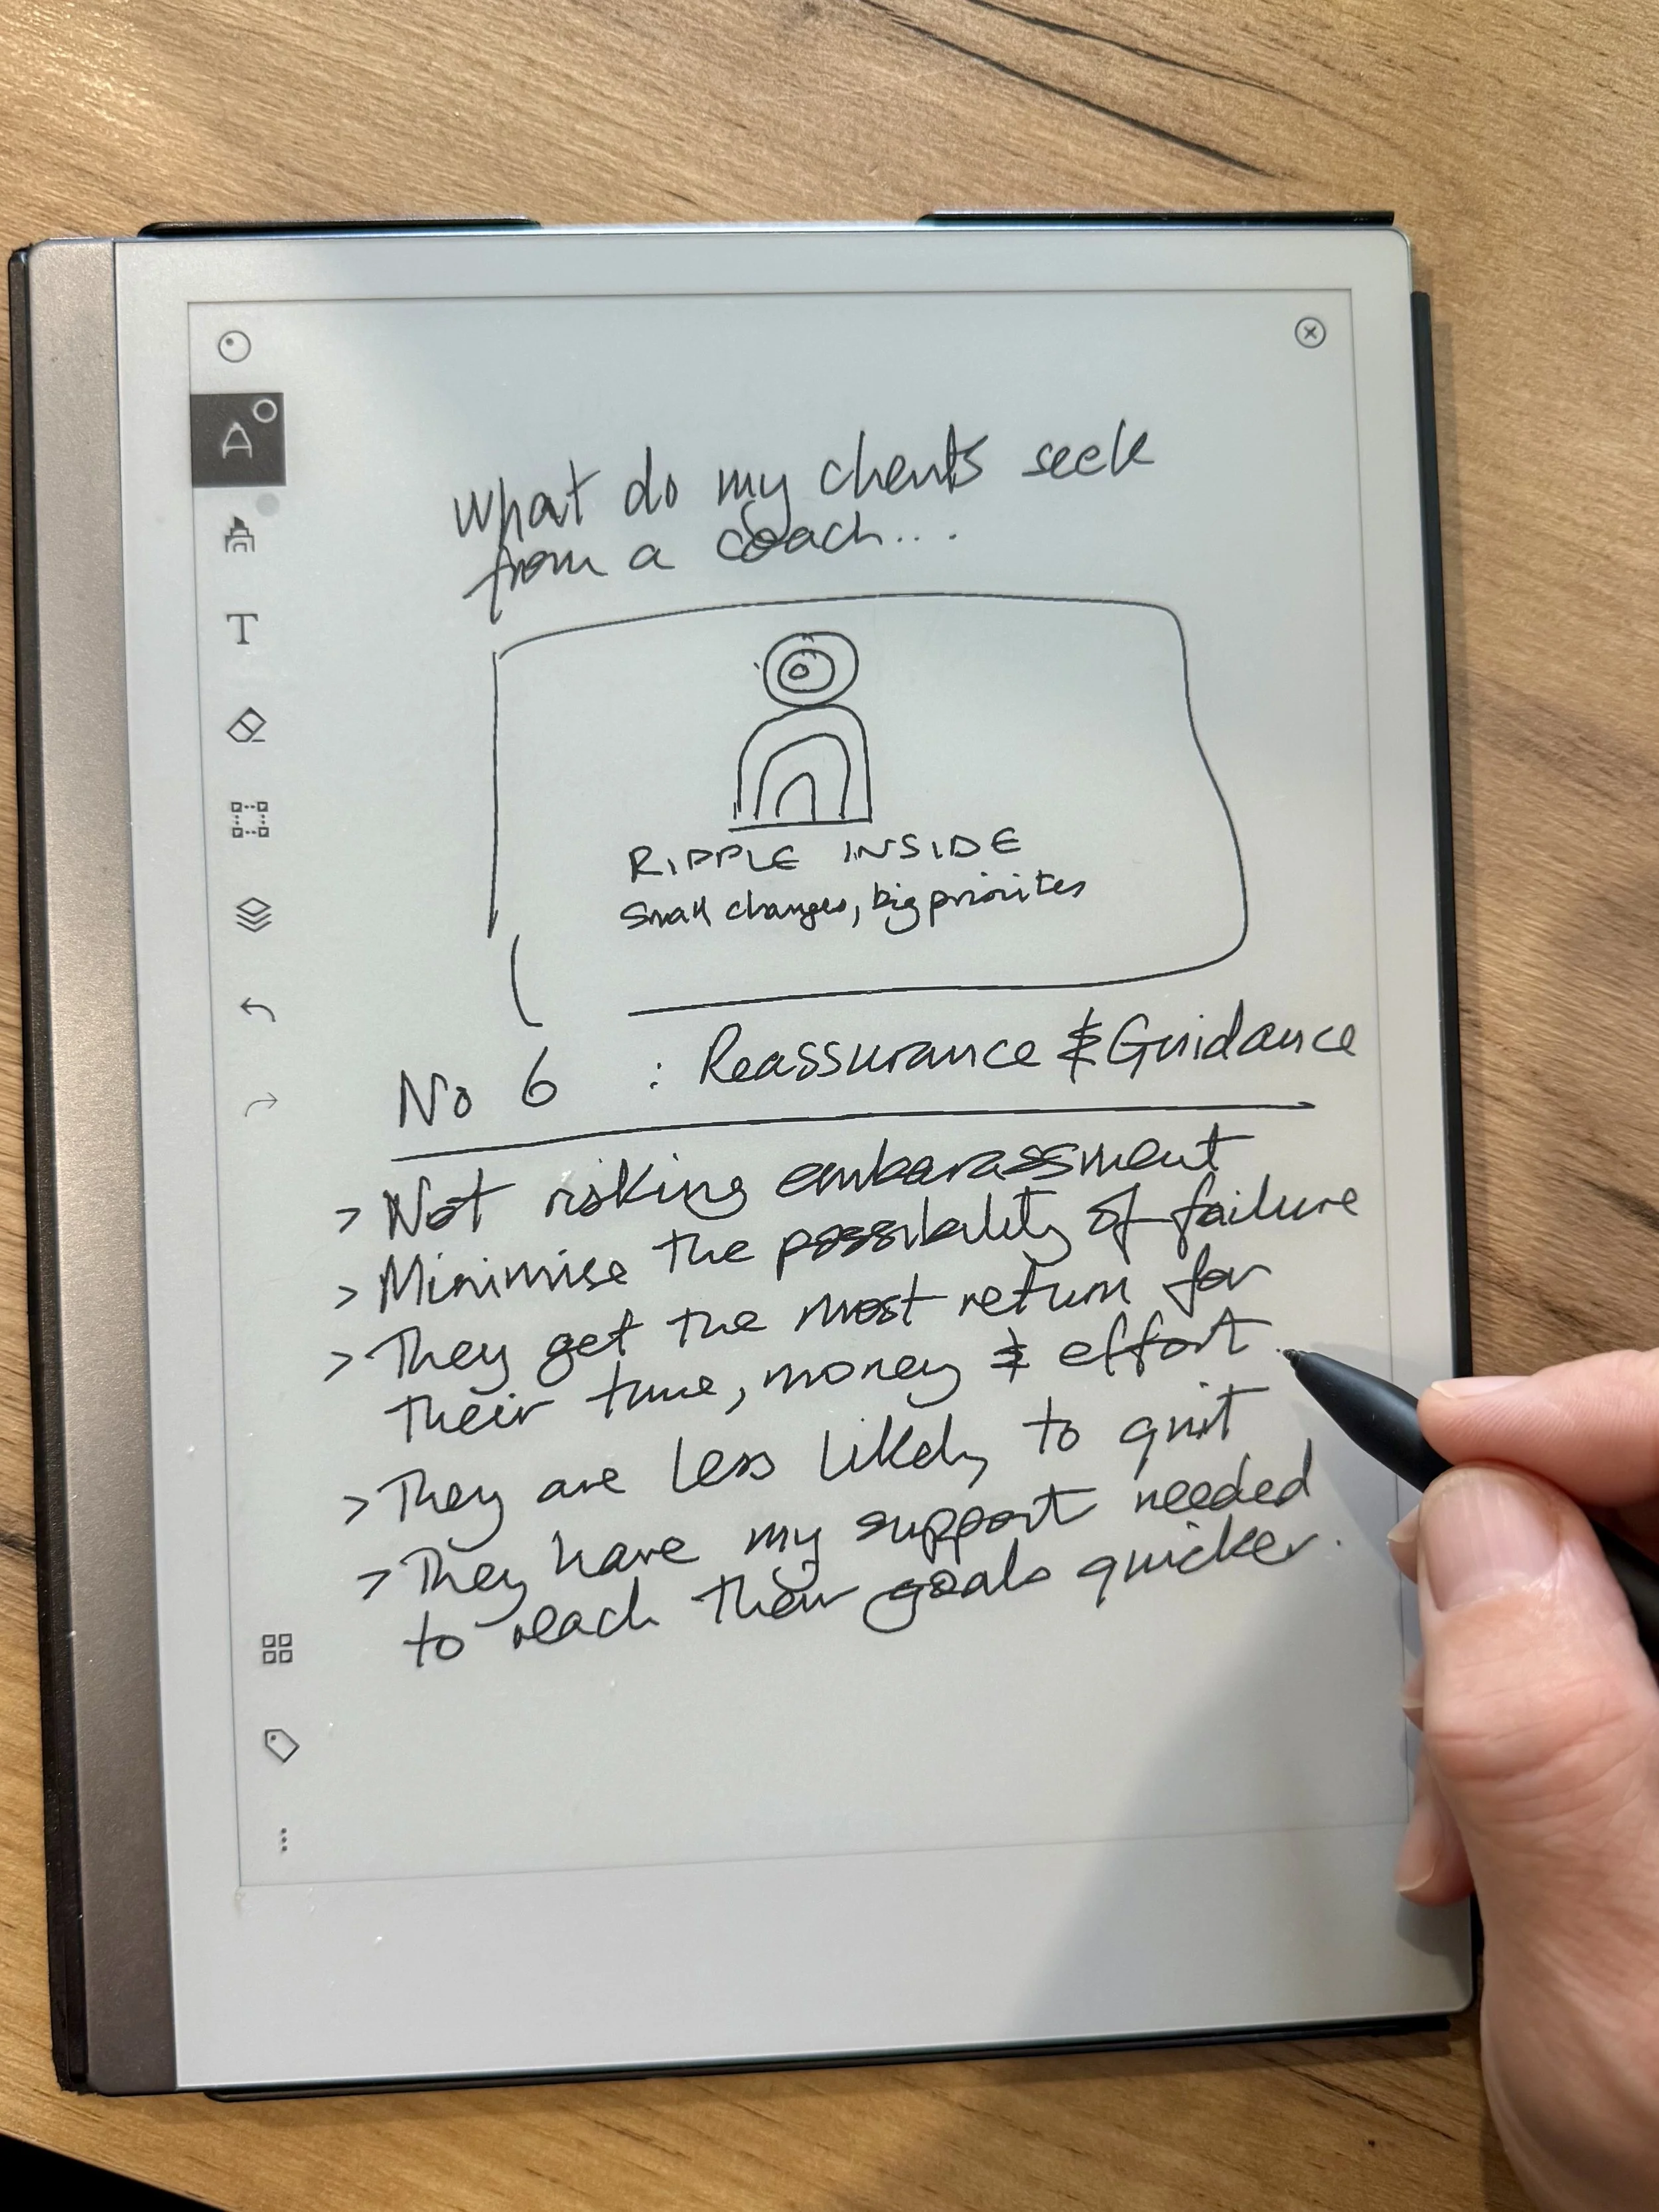 What do my clients seek
from a coach...
RIPPLE INSIDE
Small changes, big priorites
No 6 : Reassurance & Guidance
> Not risking embarassment
> Minimise the possibility of failure
> They get the most return for
their time, money & effort.
> They are less likely to quit
> They have my support needed
to reach their goals quicker.
A
T